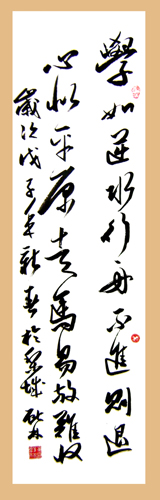 學如逆水行舟不進則退
心似平原走馬易放難收
歲次戊子年新春於